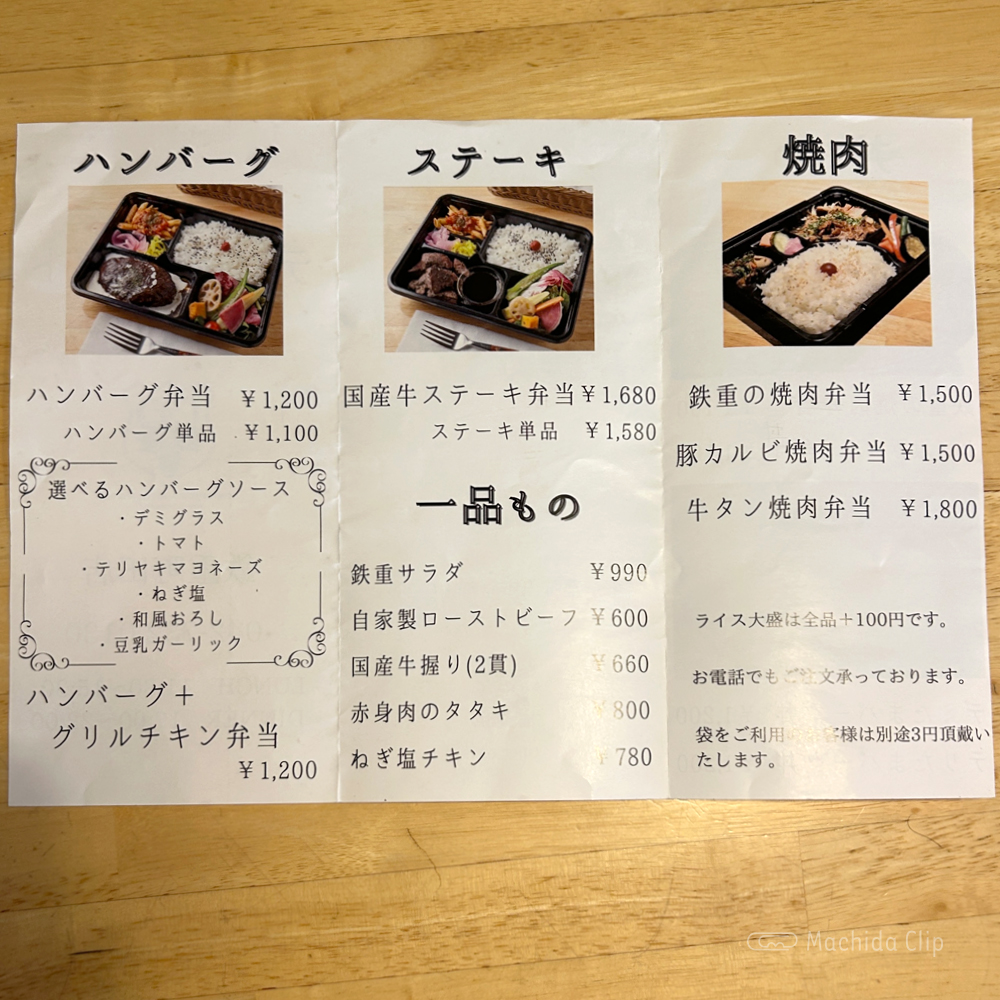 ハンバーグ
ハンバーグ弁当 ¥1,200
ハンバーグ単品 ¥1,100
選べるハンバーグソース
・デミグラス
・トマト
・テリヤキマヨネーズ
・ねぎ塩
・和風おろし
・豆乳ガーリック
ハンバーグ＋
グリルチキン弁当
¥1,200
ステーキ
国産牛ステーキ弁当 ¥1,680
ステーキ単品 ¥1,580
一品もの
鉄重サラダ ¥990
自家製ローストビーフ ¥600
国産牛握り(2貫) ¥660
赤身肉のタタキ ¥800
ねぎ塩チキン ¥780
焼肉
鉄重の焼肉弁当 ¥1,500
豚カルビ焼肉弁当 ¥1,500
牛タン焼肉弁当 ¥1,800
ライス大盛は全品＋100円です。
お電話でもご注文承っております。
袋をご利用のお客様は別途3円頂戴い
たします。
Machida Clip